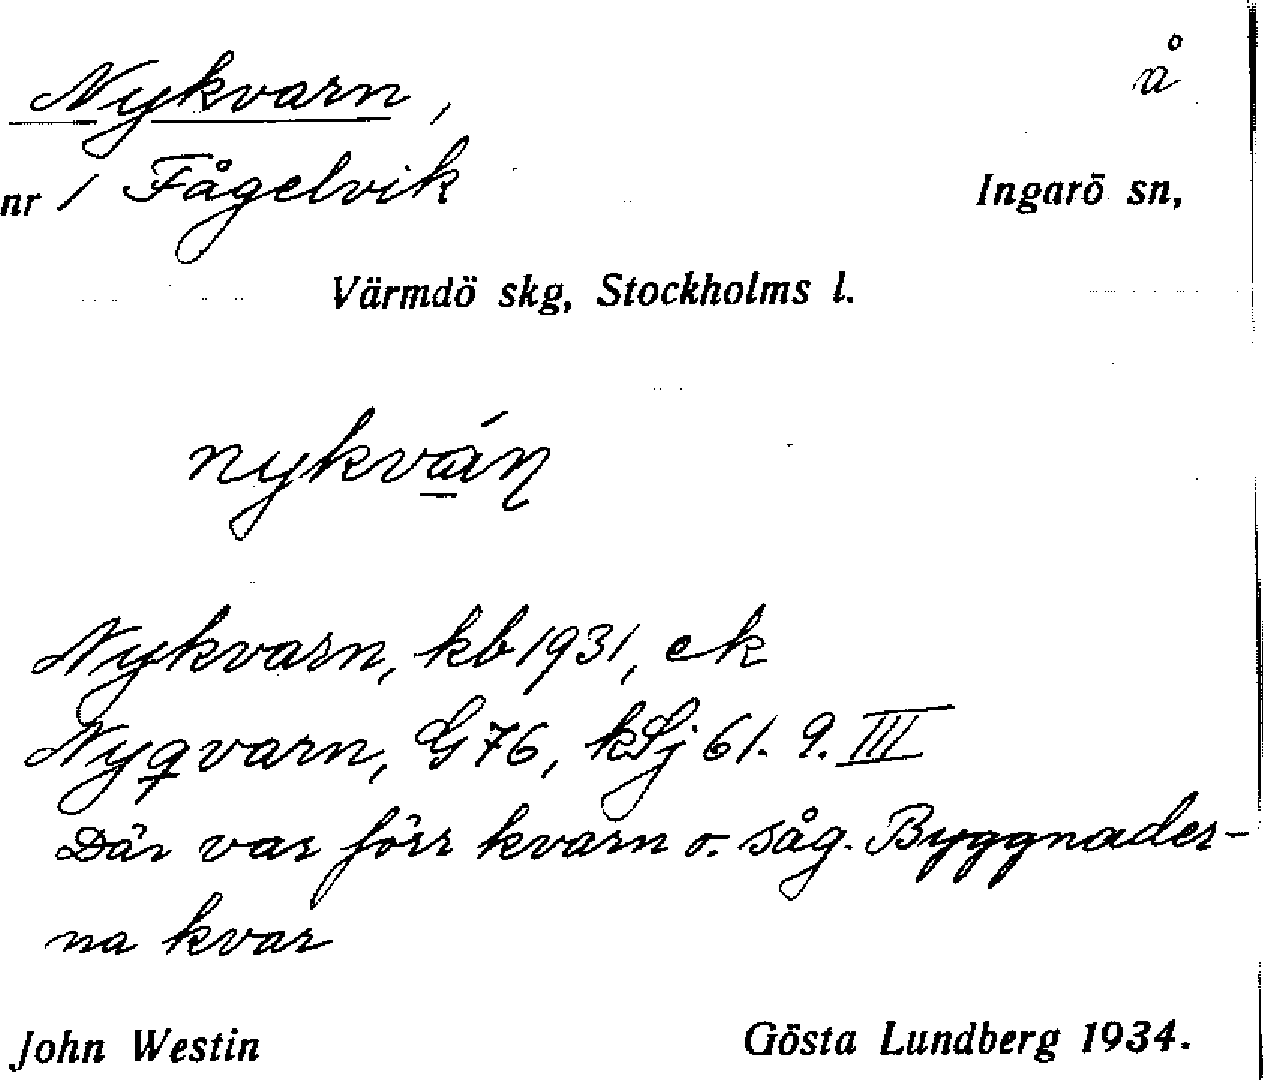 Nykvarn, å
nr 1 Fågelvik Ingarö sn,
Värmdö skg, Stockholms l.
nykván
Nykvarn, kb 1931, ek
Nyqvarn, G 76, kSj 61. 9. III
Där var förr kvarn o. såg. Byggnader-
na kvar
John Westin Gösta Lundberg 1934.